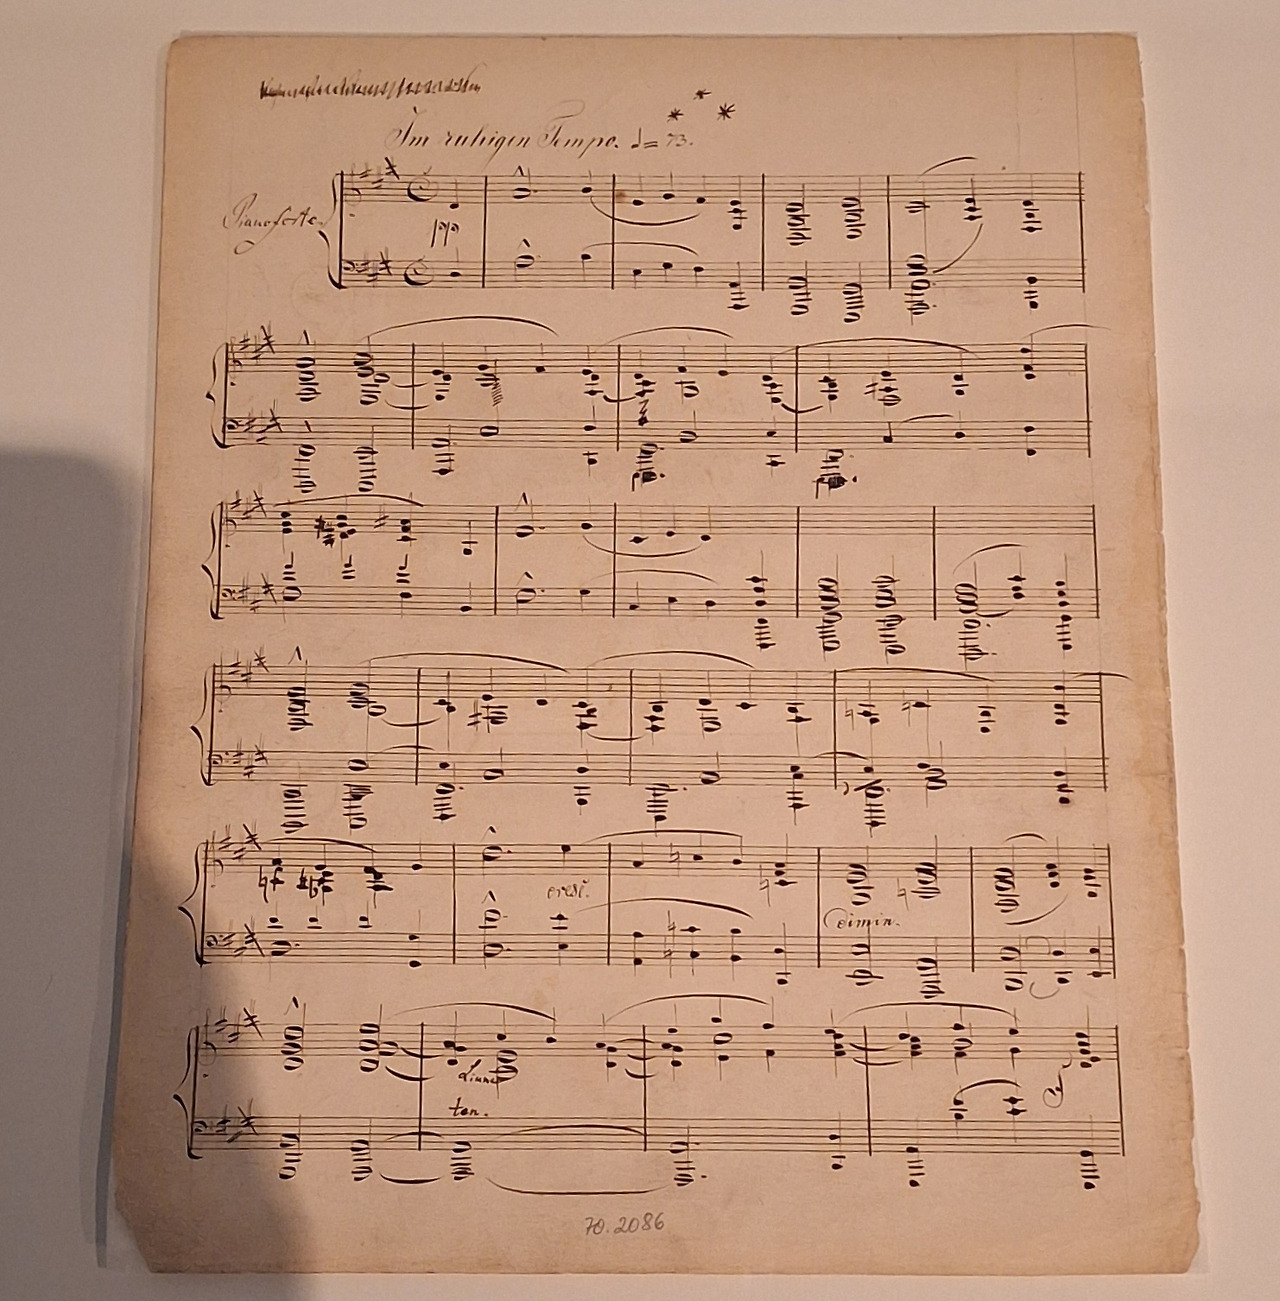 * * *
Im ruhigen Tempo. ♩= 73.
Pianoforte.
pp
cresc.
dimin.
ten.
70.2086